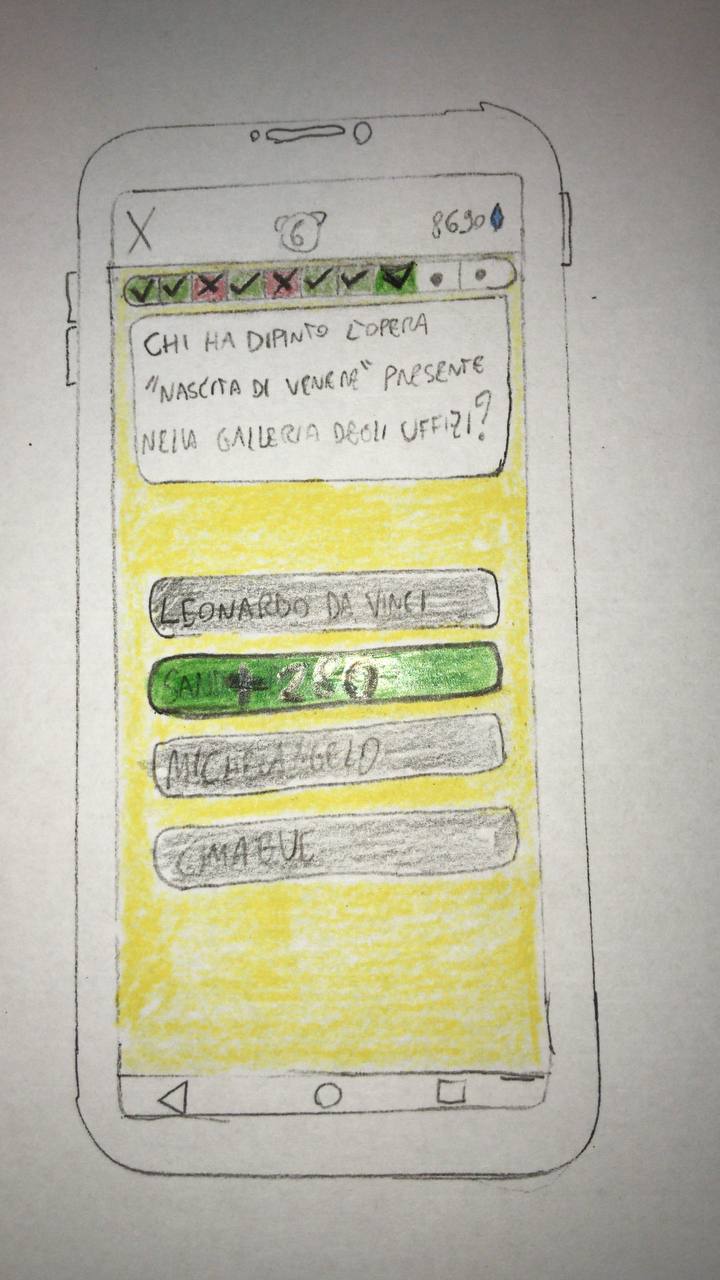 X
6
8690
CHI HA DIPINTO L'OPERA
"NASCITA DI VENERE" PRESENTE
NELLA GALLERIA DEGLI UFFIZI?
LEONARDO DA VINCI
+280
MICHELANGELO
CIMABUE